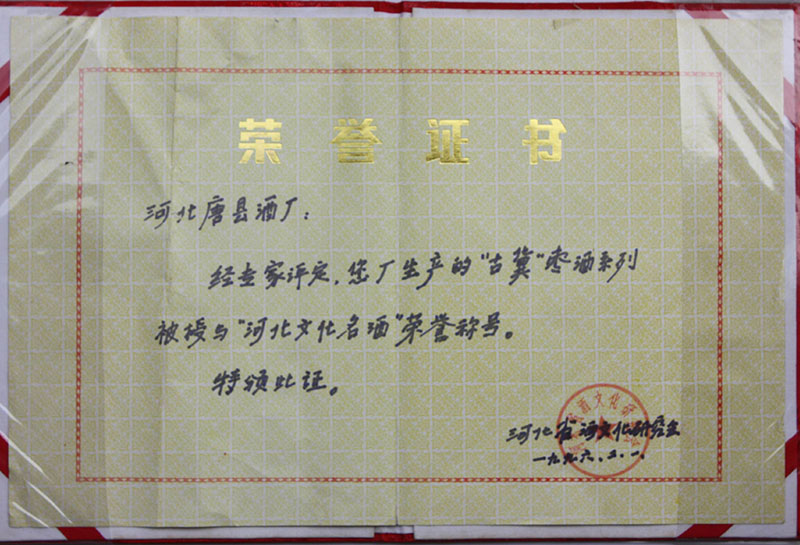 荣誉证书
河北唐县酒厂：
经专家评定，您厂生产的“古冀”枣酒系列
被授与“河北文化名酒”荣誉称号。
特颁此证。
酒文化研
河北省酒文化研究会
一九九六.五.一.